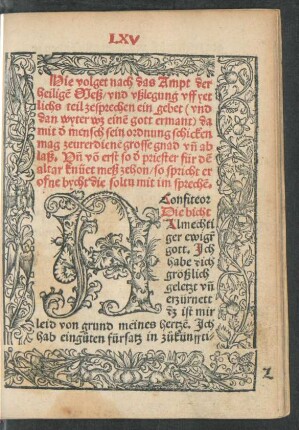 LXV
Hie volget nach das Ampt der
heiligē Meß/vnd vßlegung vff yet
lichs teil zesprechen ein gebet (vnd
dan wyter wz einē gott ermant) da
mit ð mensch sein ordnung schicken
mag zeuerdienē grosse gnad vn̄ ab
laß. Vn̄ vō erst so ð priester für dē
altar knüwet meß zehon/so spricht er
ofne bycht die soltu mit im sprechē.
Confiteor
Die bicht
Almechti
ger ewigr
gott. Ich
habe dich
größlich
geletzt vn̄
erzürnett
dz ist mir
leid von grund meines hertzē. Ich
hab ein gůten fürsatz in zůkünffti